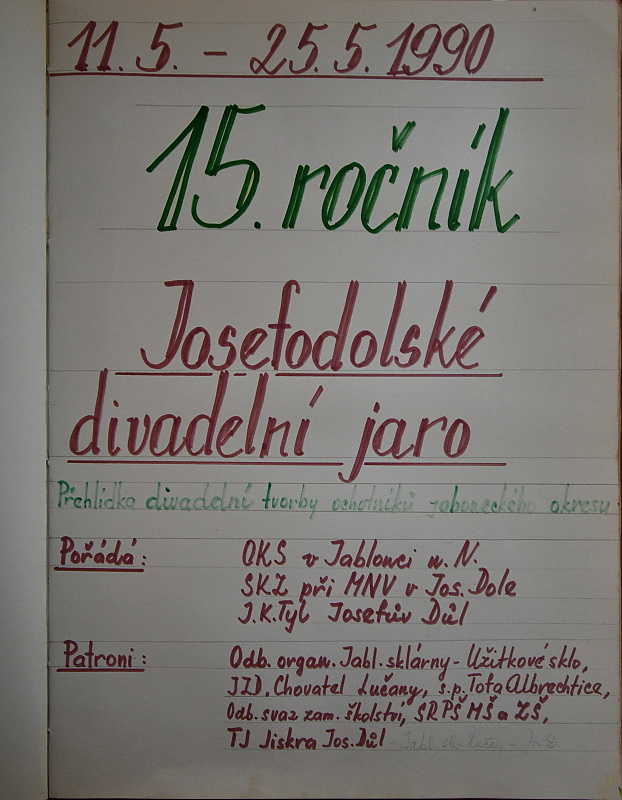 11.5. - 25.5.1990
15. ročník
Josefodolské
divadelní jaro
Přehlídka divadelní tvorby ochotníků jabloneckého okresu
Pořádá: OKS v Jablonci n. N.
SKZ při MNV v Jos. Dole
J.K.Tyl Josefův Důl
Patroni: Odb. organ. Jabl. sklárny - Užitkové sklo,
JZD. Chovatel Lučany, s.p. Tofa Albrechtice,
Odb. svaz zam. školství, SRPŠ MŠ a ZŠ,
TJ Jiskra Jos. Důl